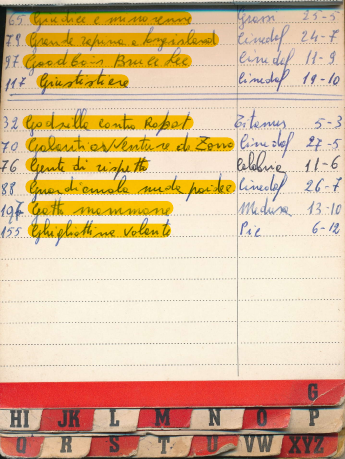 65 Giudice e minorenne Grassi 25-5
79 Grande rapina a Long island Cinedef 24-7
97 Good bois Bruce Lee Cinedef 11-9
117 Giustiziere Cinedef 19-10
32 Godzilla contro Robot Titanus 5-3
70 Galanti avventure di Zorro Cinedef 27-5
76 Gente di rispetto 11-6
88 Guardiamola nuda Cinedef 26-7
Gatti mammone Medusa 13-10
155 Ghigliottina volante Pic 6-12
G
HI JK L M N O P
Q R S T U VW XYZ